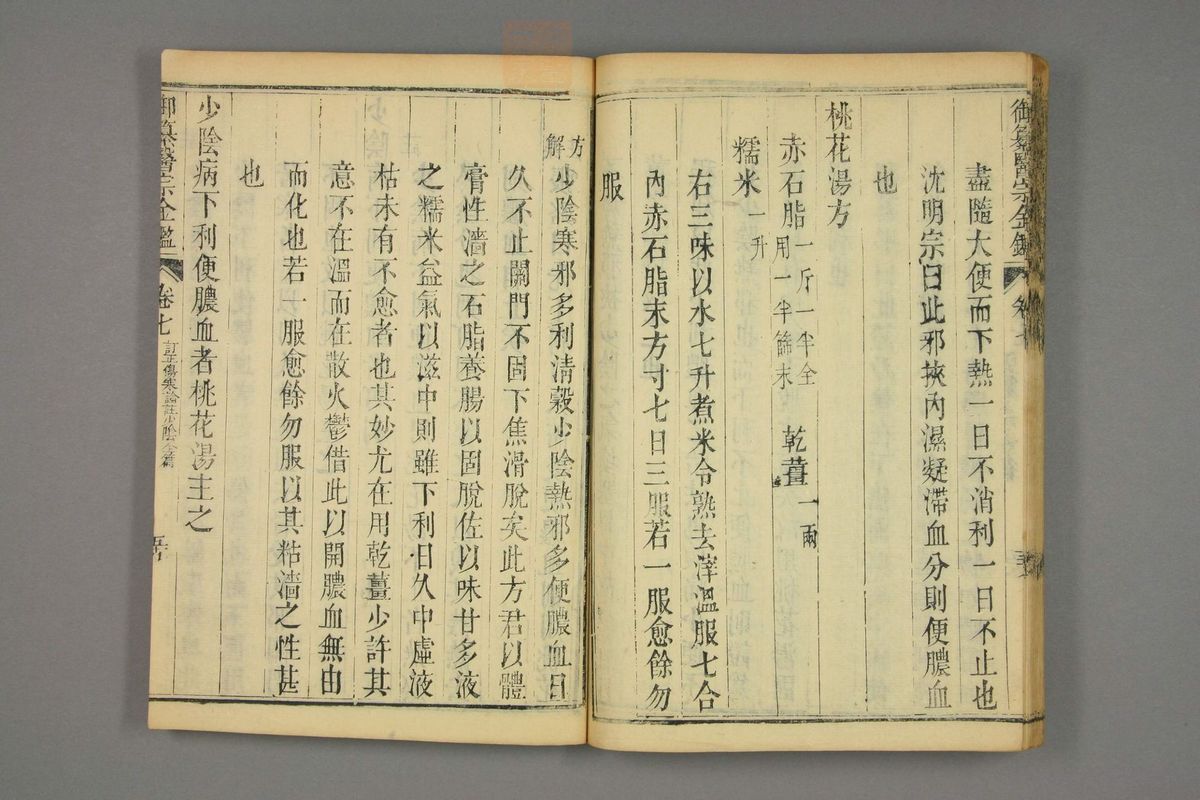 御纂醫宗金鑑
卷七
盡隨大便而下熱一日不消利一日不止也
沈明宗曰此邪挾內濕凝滯血分則便膿血
也
桃花湯方
赤石脂一斤一半全用一半篩末 乾薑一兩
糯米一升
右三味以水七升煮米令熟去滓溫服七合
內赤石脂末方寸七日三服若一服愈餘勿
服
方解
少陰寒邪多利清穀少陰熱邪多便膿血日
久不止關門不固下焦滑脫矣此方君以體
膏性濇之石脂養腸以固脫佐以味甘多液
之糯米益氣以滋中則雖下利日久中虛液
枯未有不愈者也其妙尤在用乾薑少許其
意不在溫而在散火鬱借此以開膿血無由
而化也若一服愈餘勿服以其粘濇之性甚
也
少陰病下利便膿血者桃花湯主之
御纂醫宗金鑑
卷七
訂正傷寒論註少陰全篇